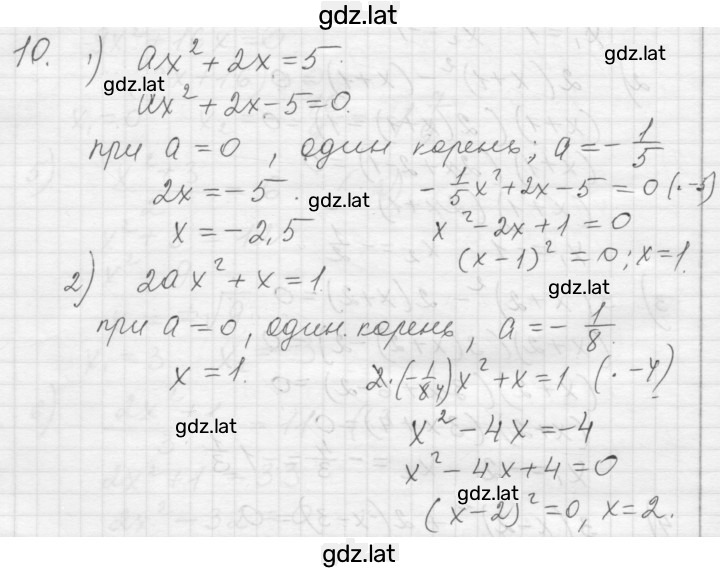 gdz.lat
10. 1) ax² + 2x = 5
gdz.lat
ax² + 2x - 5 = 0.
при a = 0, один корень; a = - 1/5
2x = -5. gdz.lat - 1/5 x² + 2x - 5 = 0 (· -5)
x = -2,5 x² - 2x + 1 = 0
(x - 1)² = 0; x = 1.
2) 2ax² + x = 1 gdz.lat
при a = 0, один корень, a = - 1/8.
x = 1. 2·(- 1/8 4)x² + x = 1 (· -4)
gdz.lat x² - 4x = -4
x² - 4x + 4 = 0
gdz.lat
(x - 2)² = 0, x = 2.
gdz.lat